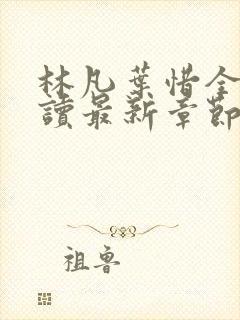 林凡葉惜全
讀最新章節
祖魯